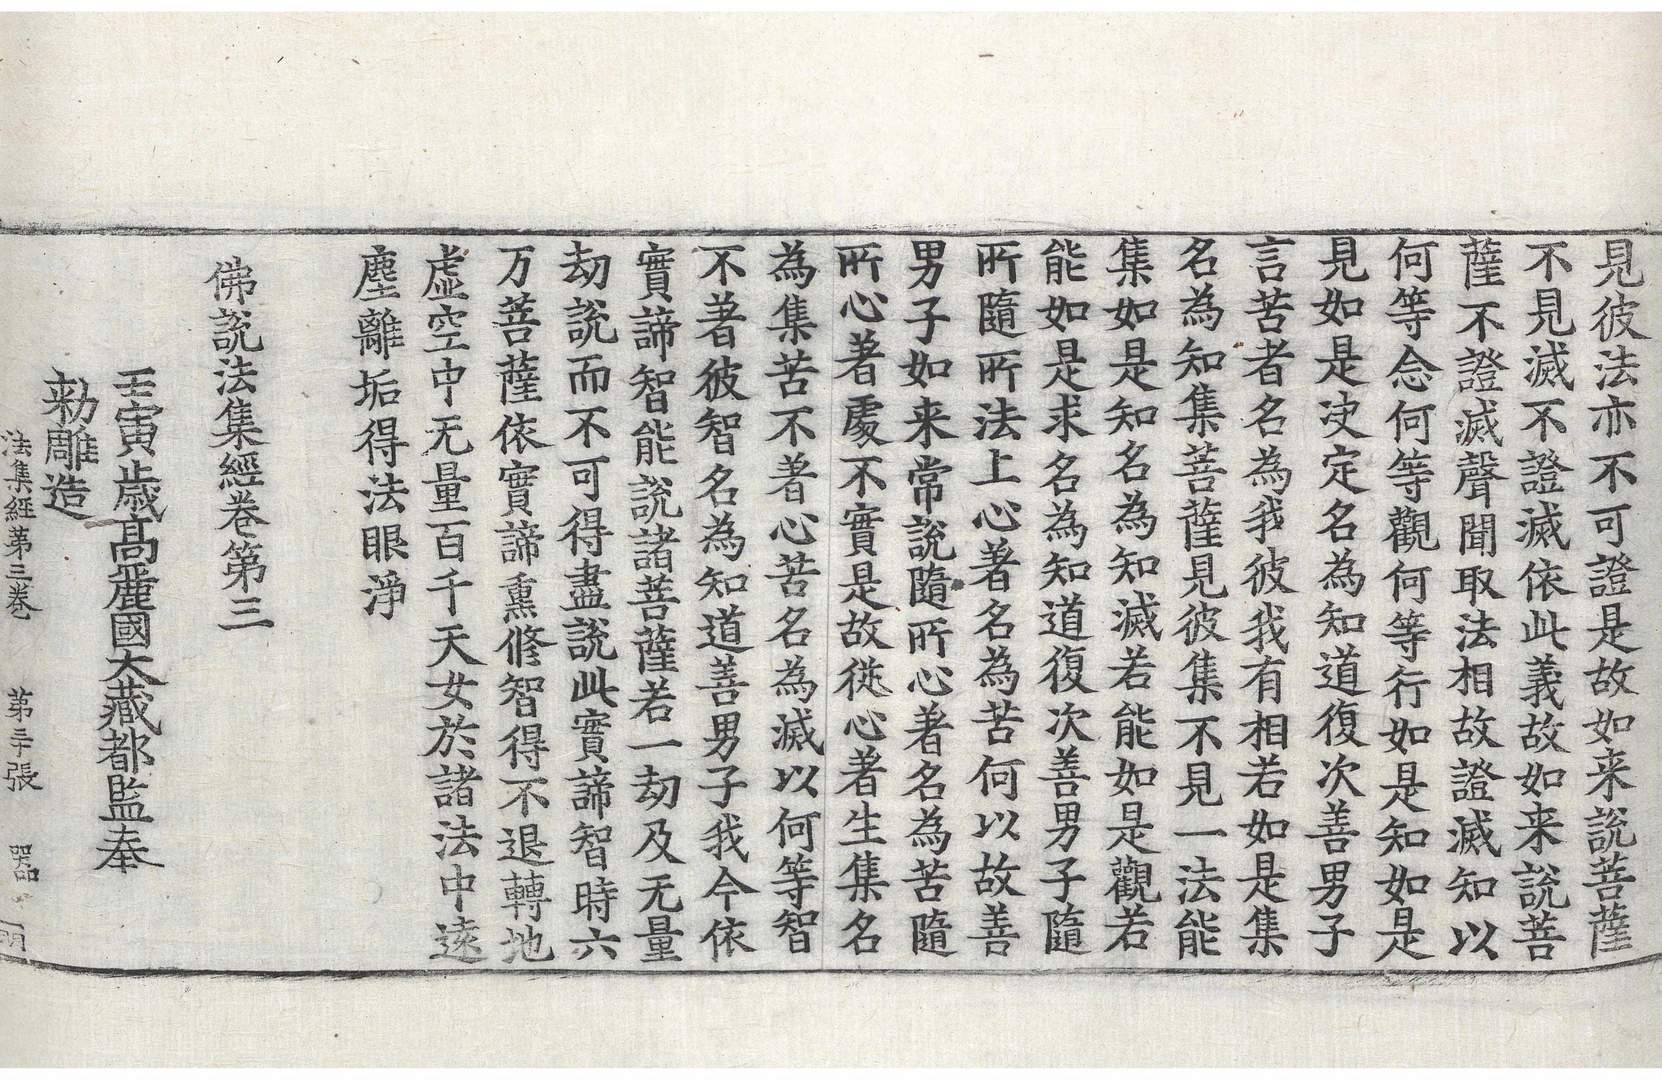 見彼法亦不可證是故如来說菩薩
不見滅不證滅依此義故如来說菩
薩不證滅聲聞取法相故證滅知以
何等念何等觀何等行如是知如是
見如是决定名為知道復次善男子
言苦者名為我彼我有相若如是集
名為知集菩薩見彼集不見一法能
集如是知名為知滅若能如是觀若
能如是求名為知道復次善男子隨
所隨所法上心著名為苦何以故善
男子如来常說隨所心著名為苦隨
所心著處不實是故從心著生集名
為集苦不著心苦名為滅以何等智
不著彼智名為知道善男子我今依
實諦智能說諸菩薩若一劫及无量
劫說而不可得盡說此實諦智時六
万菩薩依實諦熏修智得不退轉地
虛空中无量百千天女於諸法中遠
塵離垢得法眼淨
佛說法集經卷第三
壬寅歲高麗國大藏都監奉
勑雕造
法集經第三卷 第二十張 器